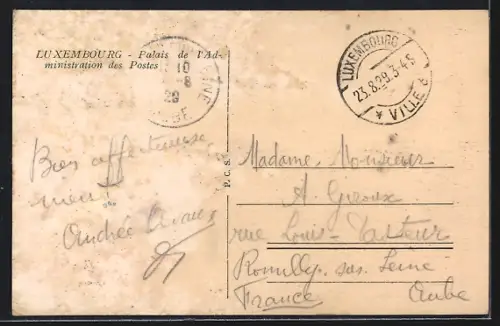 LUXEMBOURG - Palais de l'Ad-
ministration des Postes
10
8
29
AUBE
LUXEMBOURG
23.8.29.3-4S
* VILLE
Bien affectueuse
ment
Andrée
P. C. S.
Madame, Monsieur
A. Giroux
rue Louis-Pasteur
Romilly sur Seine
France Aube